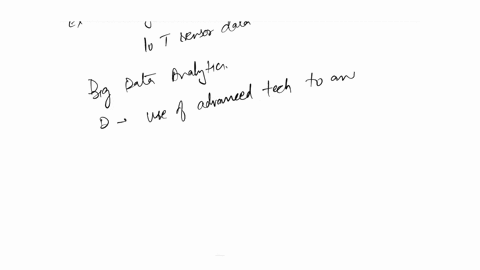 Ex
IoT sensor data
Big Data Analytics.
D → use of advanced tech to an